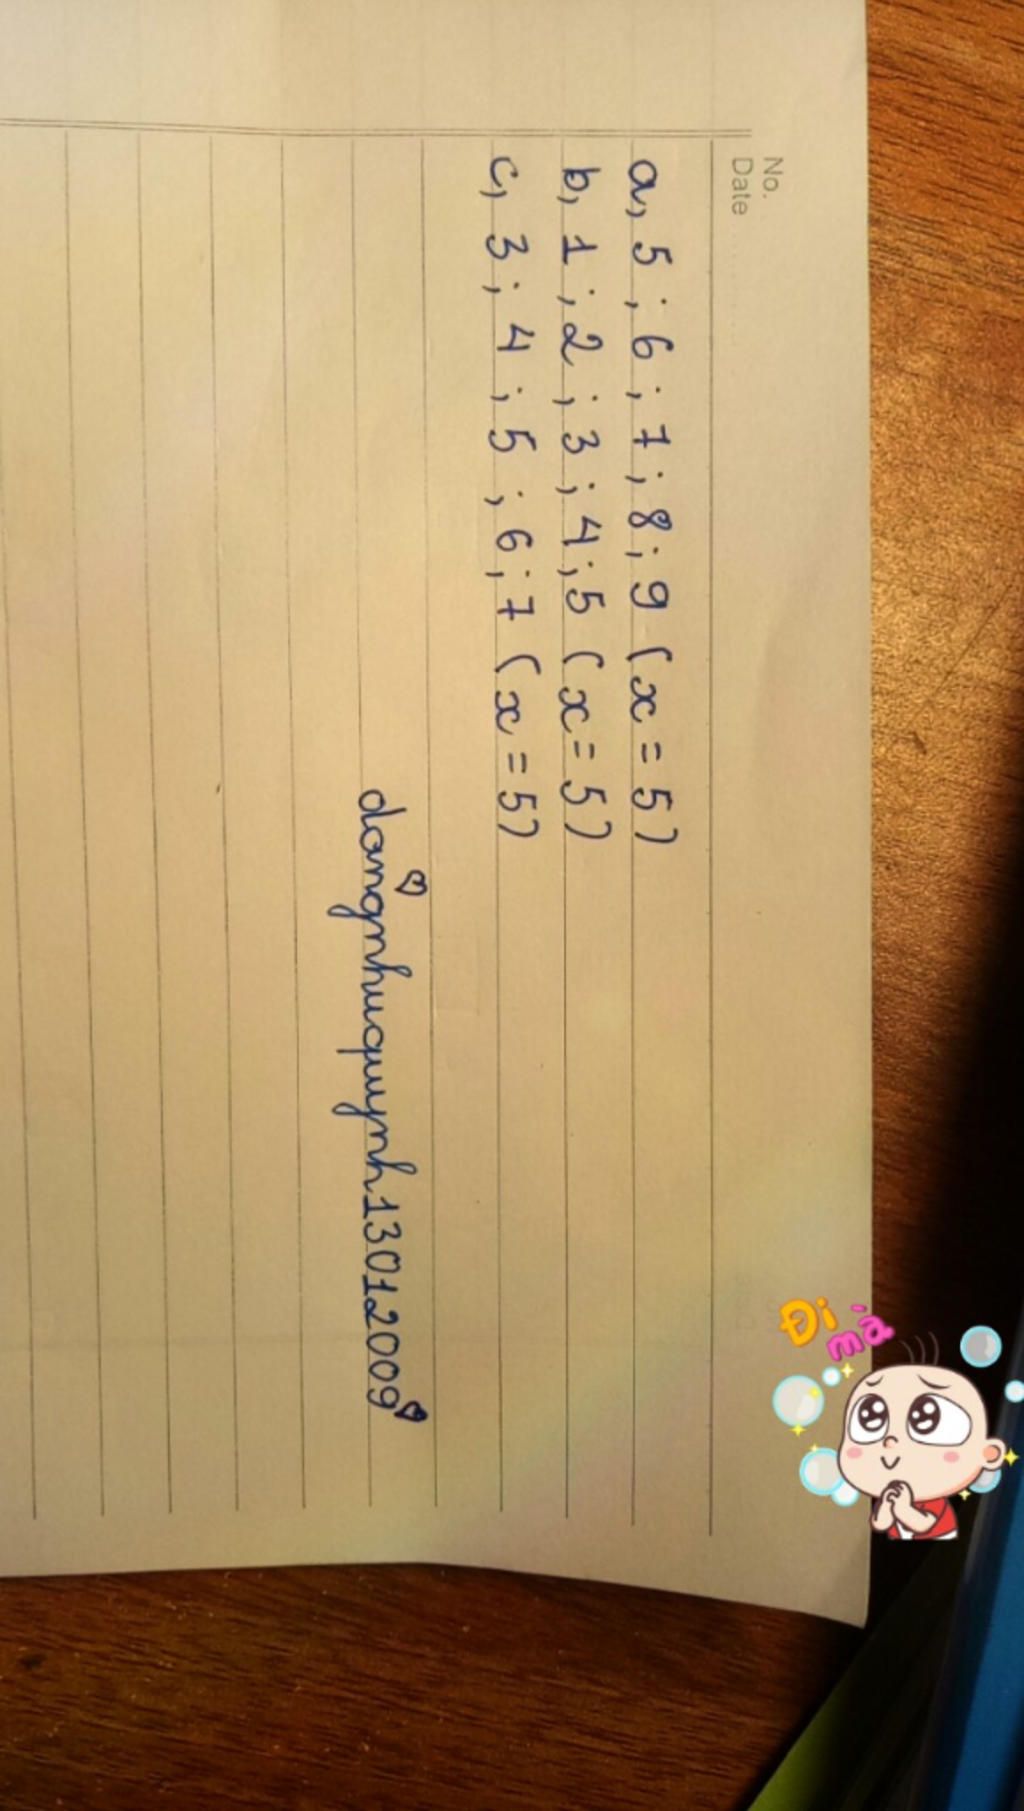 No.
Date
a, 5 ; 6 ; 7 ; 8 ; 9 (x = 5)
b, 1 ; 2 ; 3 ; 4 ; 5 (x = 5)
c, 3 ; 4 ; 5 ; 6 ; 7 (x = 5)
dangnhuquynh13012009
Đi
mà